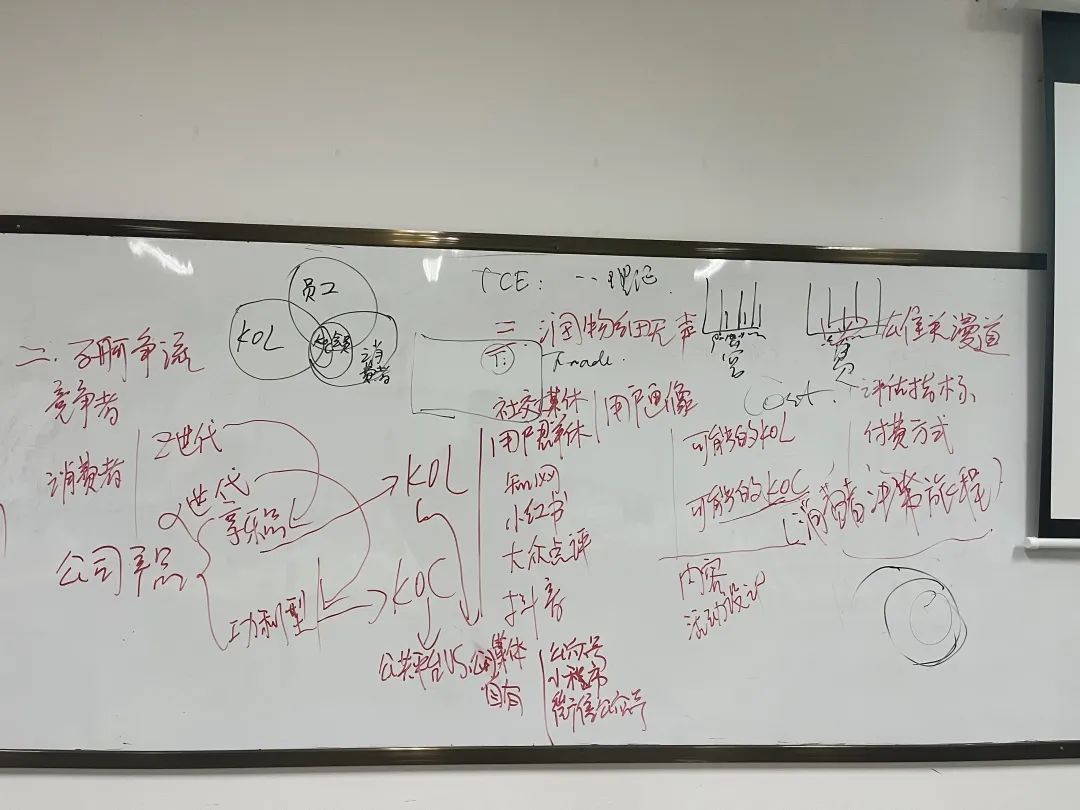 员工
KOL
消费者
TCE:
二. 百舸争流
竞争者
消费者
Z世代
α世代
公司产品
享乐品
功利型
KOL
KOC
公共平台VS.公司媒体
自有
公众号
小程序
微信公众号
二 润物细无声
T:
社交媒体
用户群体
知网
小红书
大众点评
抖音
用户画像
Cost.
可能的KOL
可能的KOC
内容
活动设计
漫道
评估指标
付费方式
(消费者决策旅程)